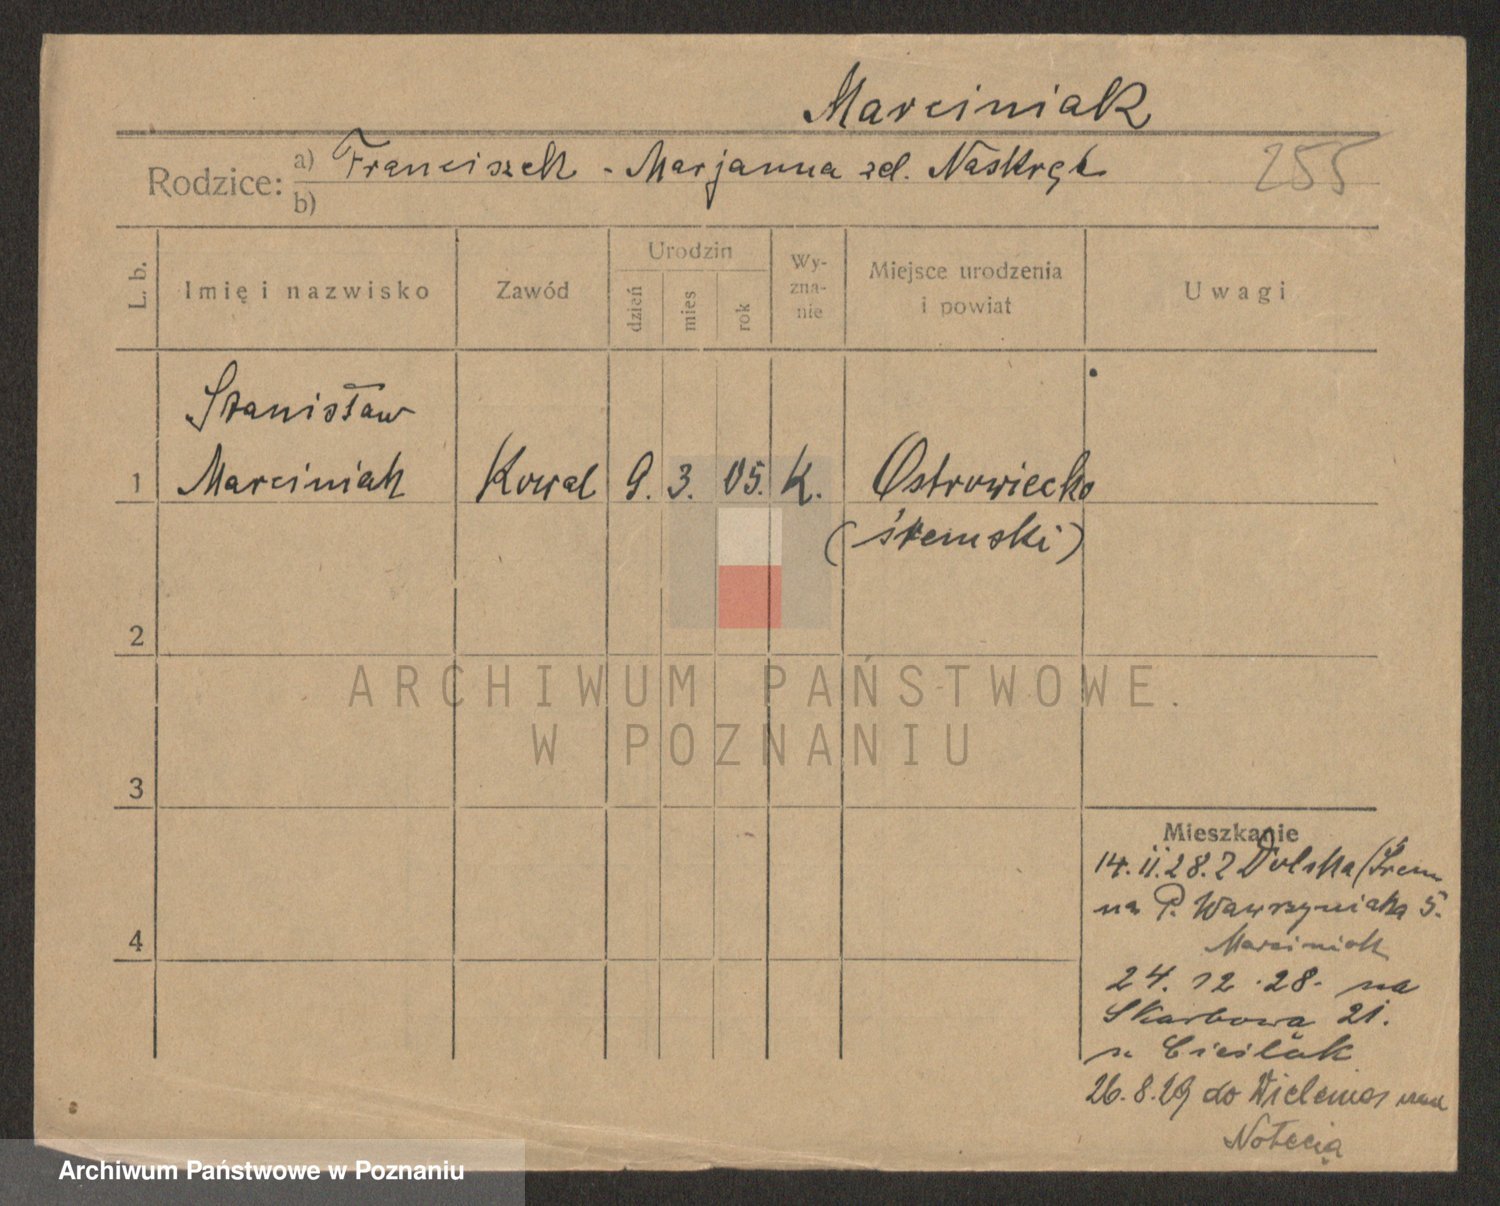 Marciniak
Rodzice: a) Franciszek - Marjanna zd. Naskręt
255
b)
L. b.
Imię i nazwisko
Zawód
Urodzin
dzień
mies
rok
Wy-
zna-
nie
Miejsce urodzenia
i powiat
Uwagi
Stanisław
1 Marciniak Kowal 9. 3. 05. K. Ostrowieczko
(śremski)
2
ARCHIWUM PAŃSTWOWE
W POZNANIU
3
Mieszkanie
14.11.28. z Dolska (Śrem
na P. Wawrzyniaka 5.
Marciniak
4
24. 12. 28. na
Skarbowa 21.
Cieślak
26.8.29 do Wielenia nad
Notecią
Archiwum Państwowe w Poznaniu